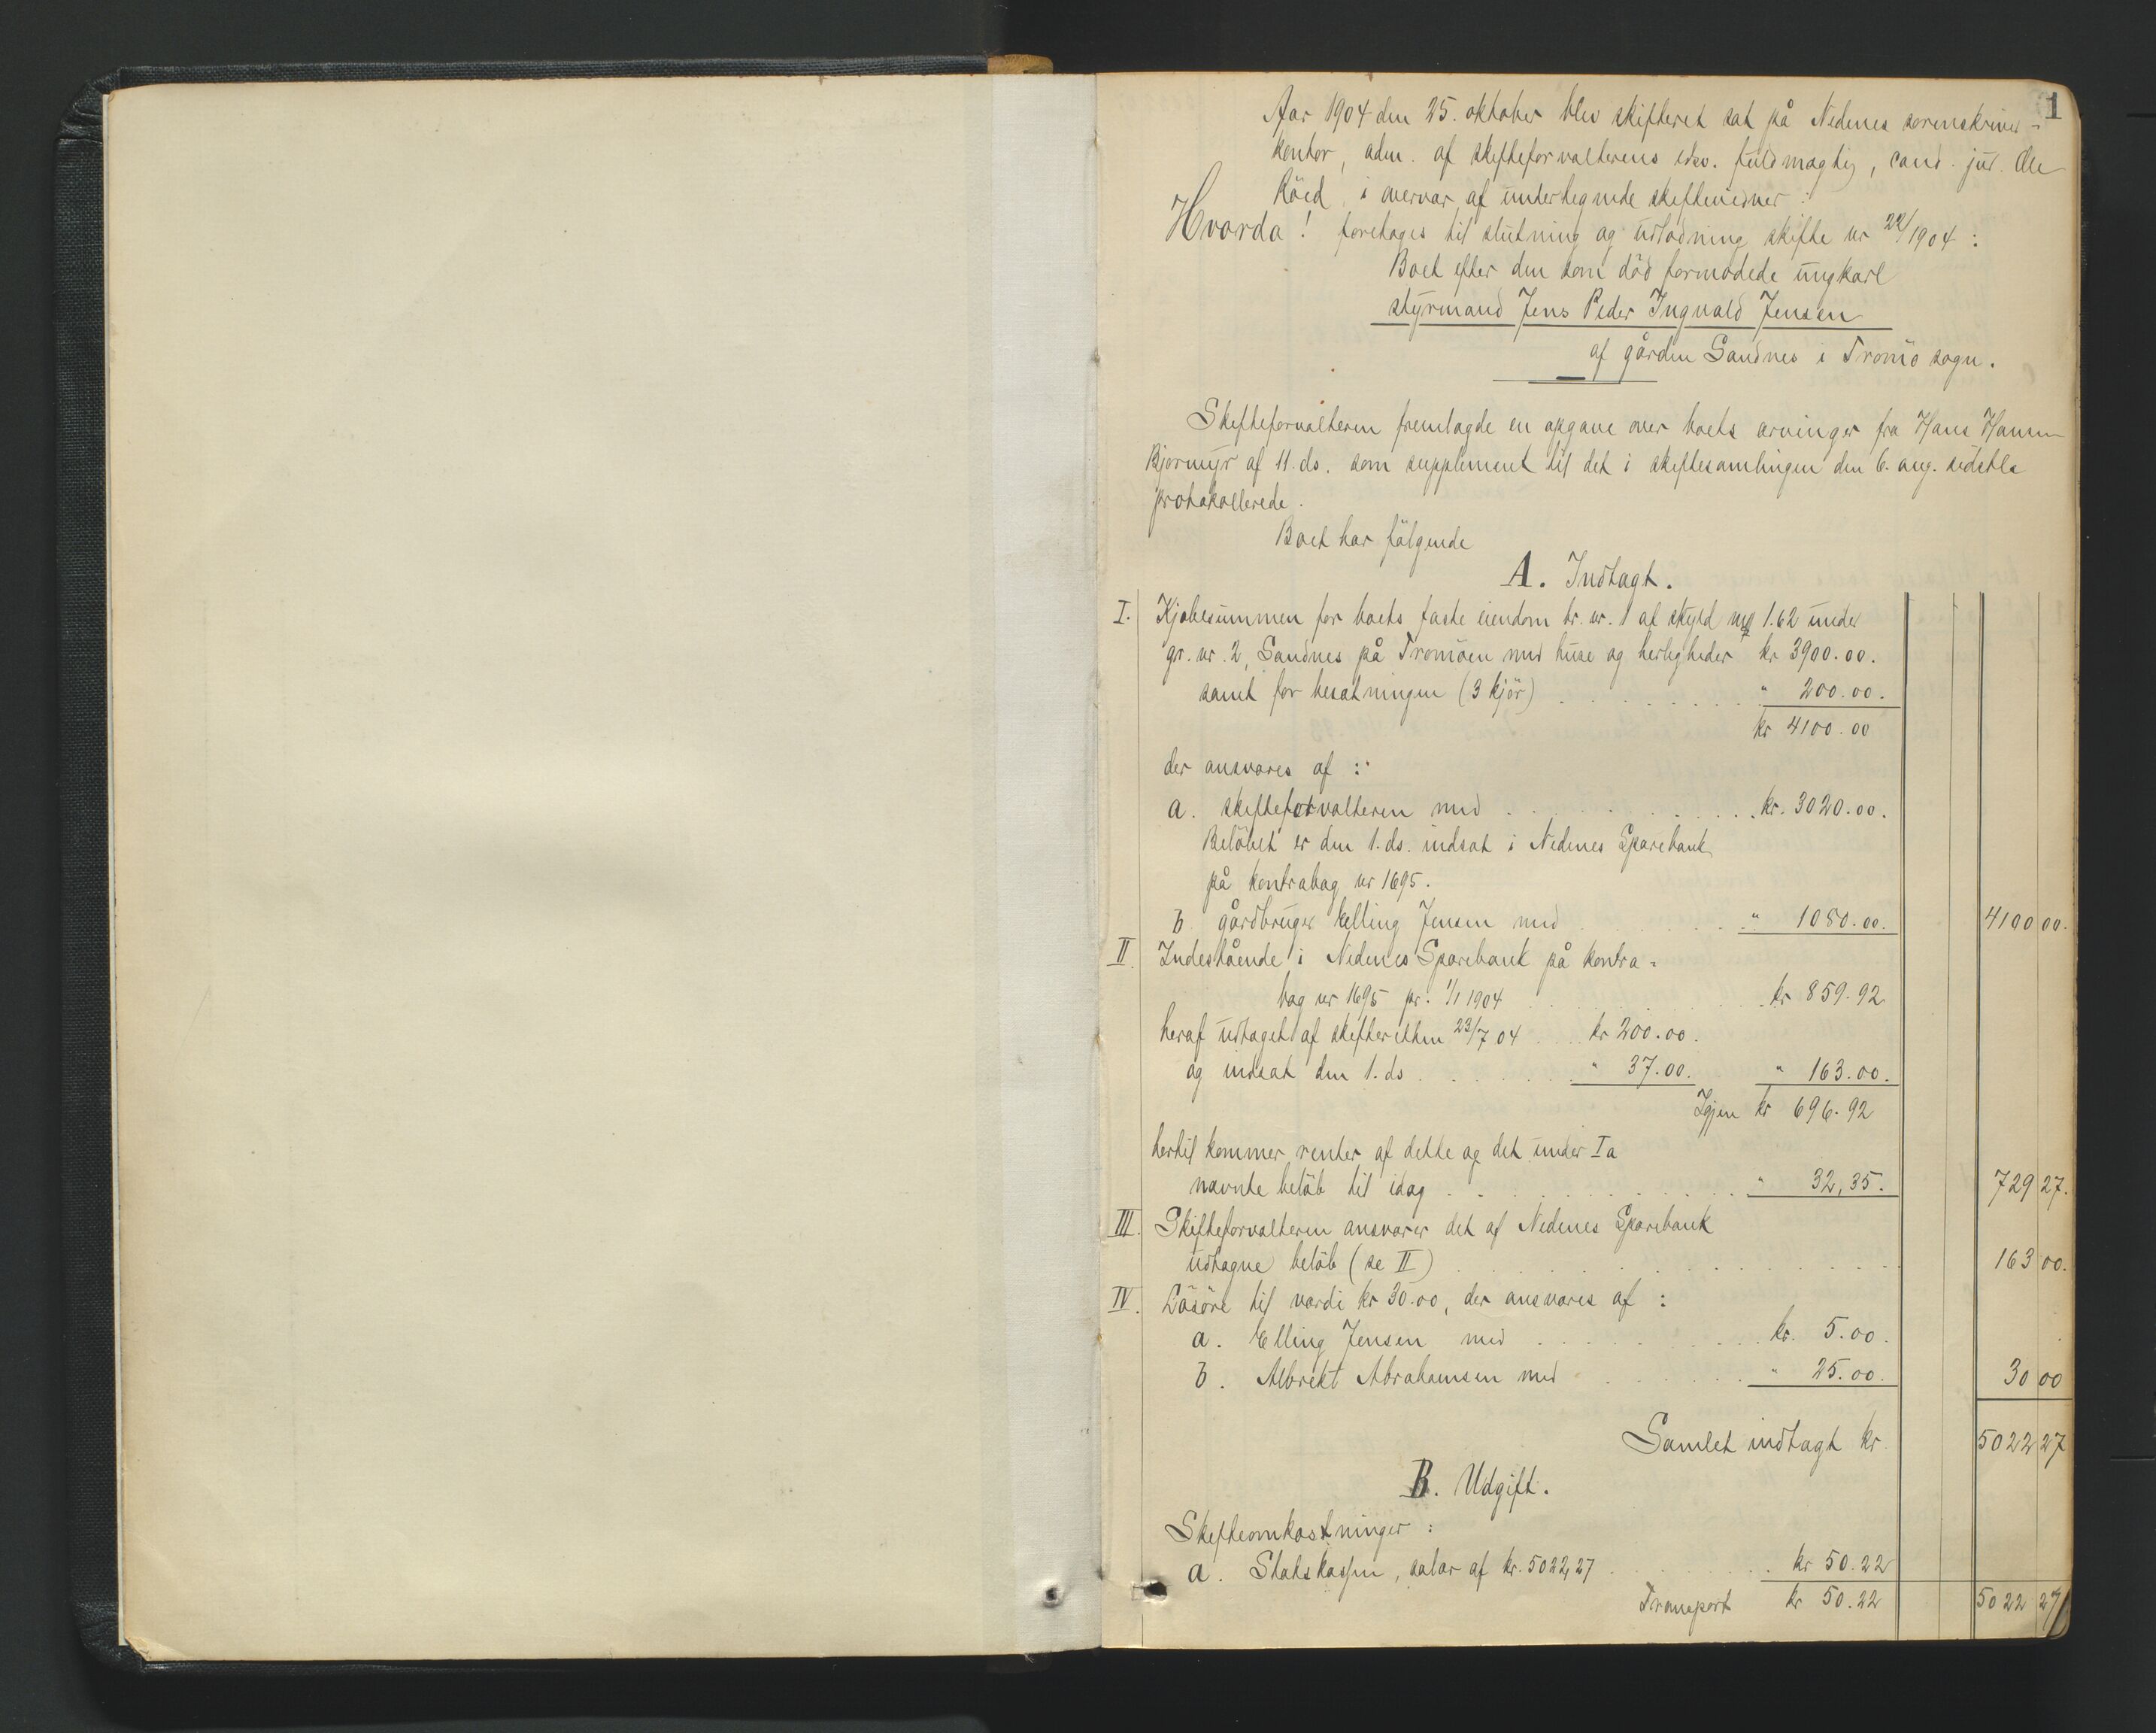 1
Aar 1904 den 25. oktober blev skifteret sat på Nedenes sorenskriver-
kontor, adm. af skifteforvalterens edsv. fuldmægtig, cand. jur. Ole
Röed i overvær af undertegnede skiftevidner:
Hvorda! foretoges til slutning og udlodning skifte nr 22/1904:
Boet efter den som död formodede ungkarl
styrmand Jens Peder Ingvald Jensen
af gården Sandnes i Tromö sogn.
Skifteforvalteren fremlagde en opgave over boets arvinger fra Hans Hansen
Bjormyr af 11. ds. som supplement til det i skiftesamlingen den 6. aug. sidstl.
protokollerede.
Boet har fölgende
A. Indtægt.
I. Kjöbesummen for boets faste eiendom br. nr. 1 af skyld 1.62 under
gr. nr. 2, Sandnes på Tromöen med huse og herligheder kr 3900.00.
samt for besætningen (3 kjör) . . . . . " 200.00.
kr 4100.00
der ansvares af:
a. skifteforvalteren med . . . . . kr. 3020.00.
Belöbet er den 1. ds. indsat i Nedenes Sparebank
på kontrabog nr 1695.
b gårdbruger Elling Jensen med . . . . . " 1080.00. 4100 00.
II. Indestående i Nedenes Sparebank på kontra-
bog nr 1695 pr. 1/1 1904 . . . . . kr 859.92
heraf udtaget af skifteretten 23/7 04 . . kr 200.00.
og indsat den 1. ds . . . . . " 37.00. " 163.00.
Igjen kr 696.92
hertil kommer renter af dette og det under Ia
nævnte belöb til idag . . . . . " 32,35. 729 27.
III. Skifteforvalteren ansvarer det af Nedenes Sparebank
udtagne belöb (se II) . . . . . 163 00.
IV. Lösöre til værdi kr 30.00, der ansvares af:
a. Elling Jensen med . . . . . kr. 5.00.
b. Albrekt Abrahamsen med . . . . . " 25.00. 30 00
Samlet indtægt kr. 5022 27
B. Udgift.
Skifteomkostninger:
a. Statskassen, salær af kr. 5022,27 . . . . . kr 50.22
Transport kr 50.22 5022 27